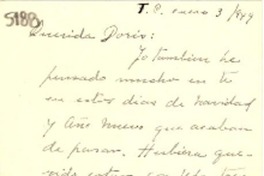 5188
T. P. enero 3/949
Querida Doris:
Yo también he
pensado mucho en ti
en estos días de navidad
y Año Nuevo que acaban
de pasar. Hubiera que-
rido estar